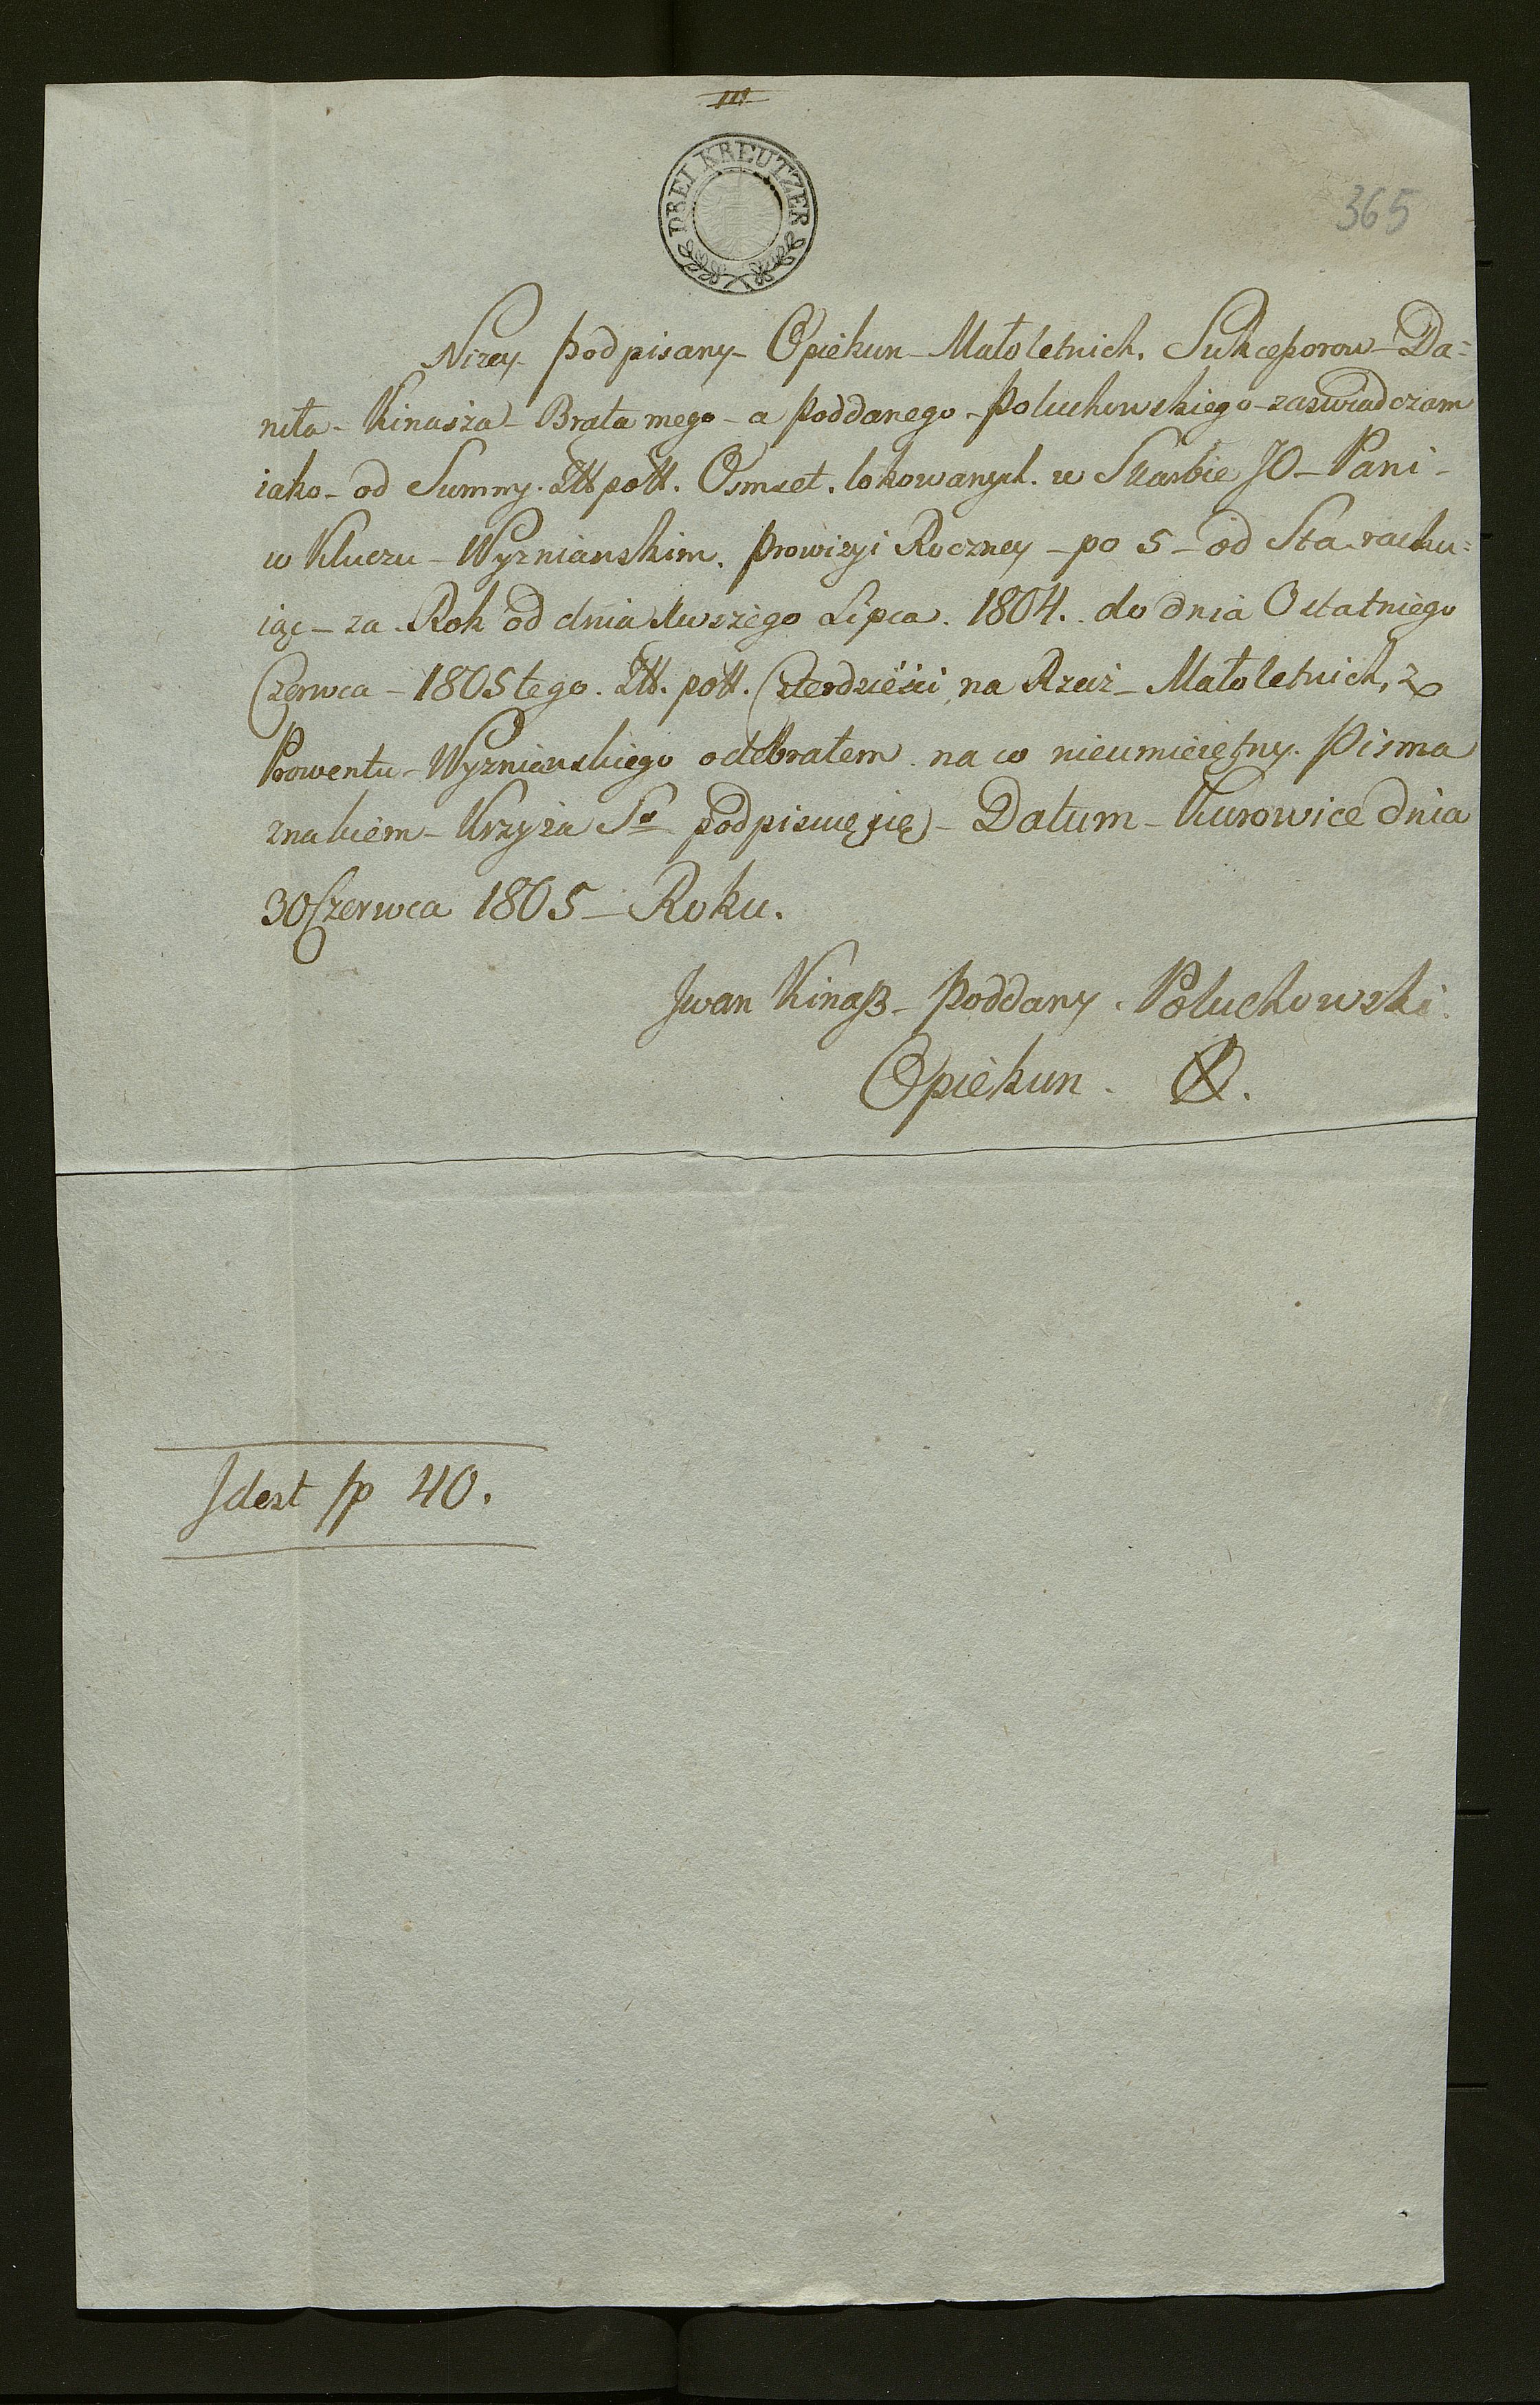 DREI KREUTZER
365
Nizey podpisany Opiekun Małoletnich. Sukceßorow Da=
niła Kinasza Brata mego a Poddanego Poluchowskiego zaswiadczam
iako od Summy. Ztt pott. Osmset. lokowanych. w Skarbie JO Pani
w Kluczu Wyznianskim. Prowizyi Roczney po 5 od Sta rachu=
iąc za Rok od dnia 1wszego Lipca. 1804. do dnia Ostatniego
Czerwca 1805tego. Ztt. pott. Czterdzieści na Rzeiż Małoletnich, z
Prowentu Wyznianskiego odebrałem na co nieumieiętny Pisma
znakiem Krzyża So podpisuię się Datum Kurowice dnia
30 Czerwca 1805 Roku.
Jwan Kinaß Poddany Poluchowski
Opiekun
Jdest fp 40.